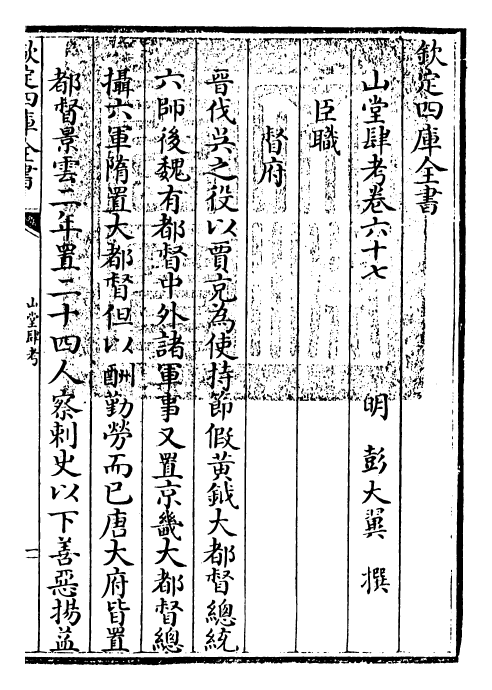 欽定四庫全書
山堂肆考卷六十七
明 彭大翼 撰
臣職
督府
晉伐吳之役以賈充為使持節假黃鉞大都督總統
六師後魏有都督中外諸軍事又置京畿大都督總
攝六軍隋置大都督但以酬勤勞而已唐大府皆置
都督景雲二年置二十四人察刺史以下善惡揚益
欽定四庫全書
山堂肆考
一